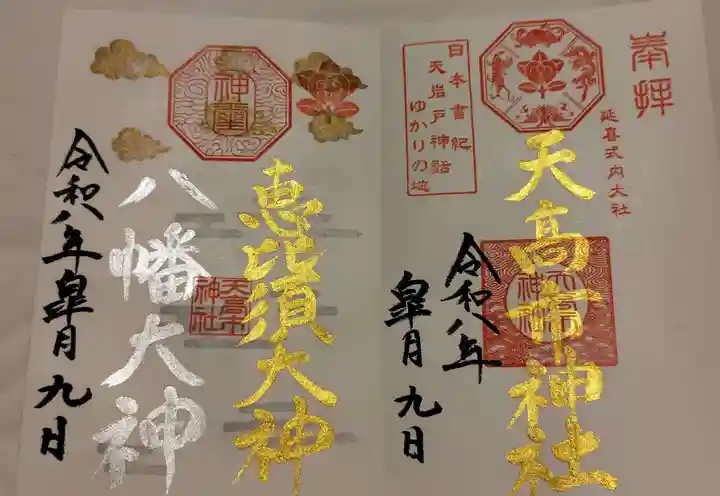 奉拝
延喜式内大社
天高市神社
日本書紀
天岩戸神話
ゆかりの地
令和八年
皐月九日
天高市
神社
恵比須大神
八幡大神
天高市
神社
令和八年皐月九日